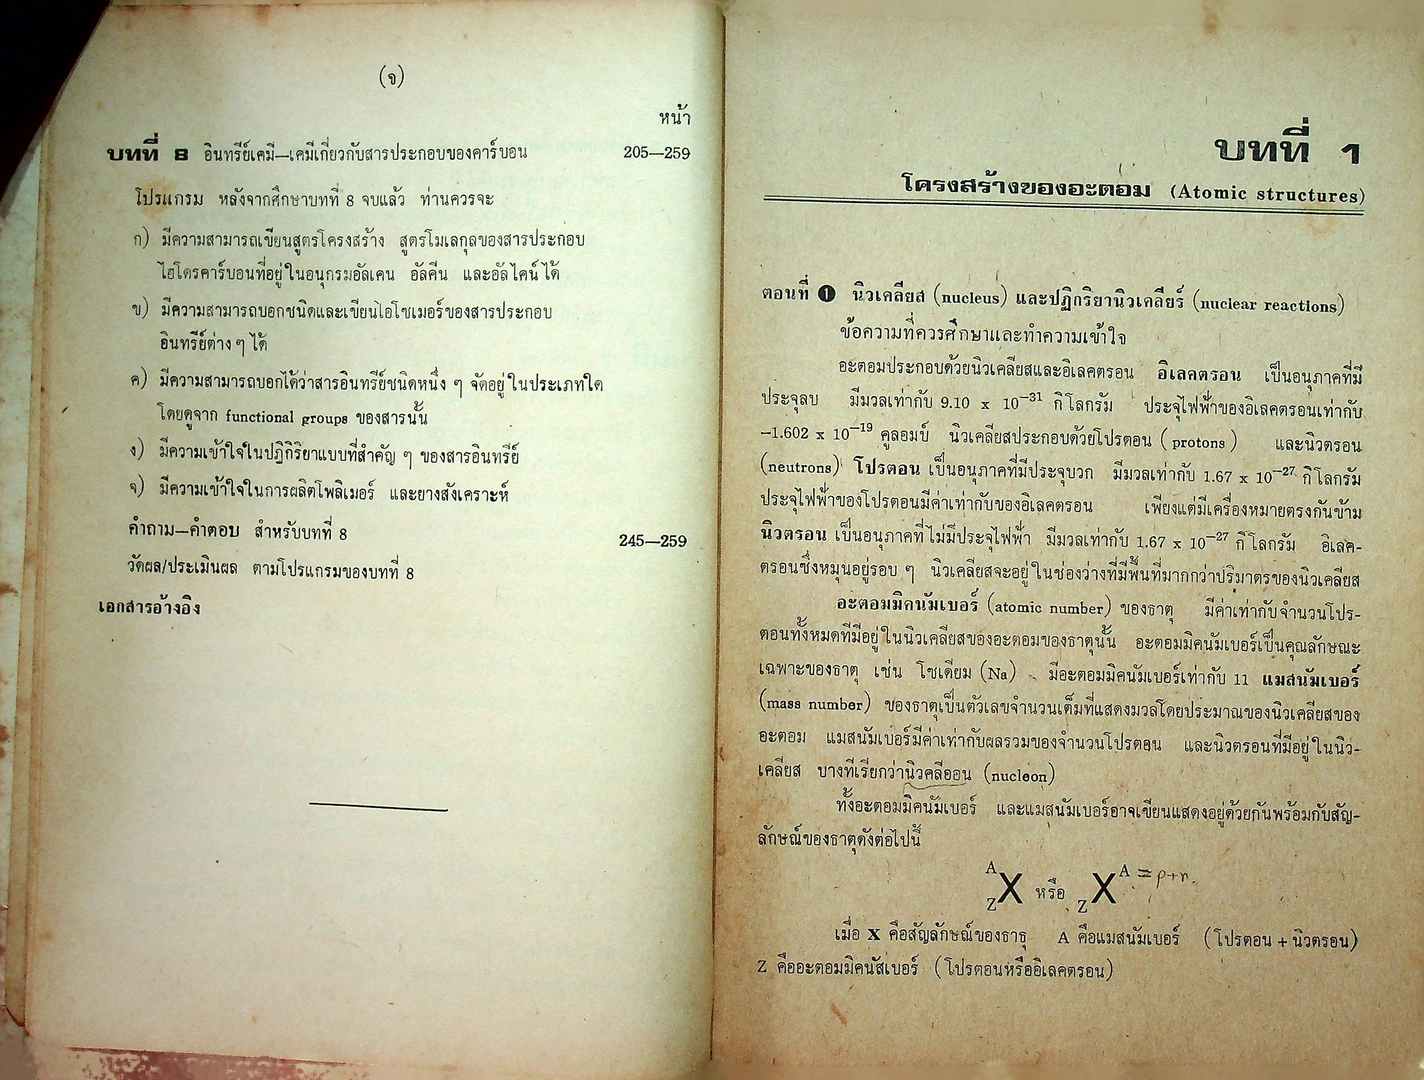 (จ)
หน้า
บทที่ 8 อินทรีย์เคมี—เคมีเกี่ยวกับสารประกอบของคาร์บอน 205—259
โปรแกรม หลังจากศึกษาบทที่ 8 จบแล้ว ท่านควรจะ
ก) มีความสามารถเขียนสูตรโครงสร้าง สูตรโมเลกุลของสารประกอบ
ไฮโดรคาร์บอนที่อยู่ในอนุกรมอัลเคน อัลคีน และอัลไคน์ได้
ข) มีความสามารถบอกชนิดและเขียนไอโซเมอร์ของสารประกอบ
อินทรีย์ต่าง ๆ ได้
ค) มีความสามารถบอกได้ว่าสารอินทรีย์ชนิดหนึ่ง ๆ จัดอยู่ในประเภทใด
โดยดูจาก functional groups ของสารนั้น
ง) มีความเข้าใจในปฏิกิริยาแบบที่สำคัญ ๆ ของสารอินทรีย์
จ) มีความเข้าใจในการผลิตโพลิเมอร์ และยางสังเคราะห์
คำถาม—คำตอบ สำหรับบทที่ 8 245—259
วัดผล/ประเมินผล ตามโปรแกรมของบทที่ 8
เอกสารอ้างอิง
บทที่ 1
โครงสร้างของอะตอม (Atomic structures)
ตอนที่ 1 นิวเคลียส (nucleus) และปฏิกริยานิวเคลียร์ (nuclear reactions)
ข้อความที่ควรศึกษาและทำความเข้าใจ
อะตอมประกอบด้วยนิวเคลียสและอิเลคตรอน อิเลคตรอน เป็นอนุภาคที่มี
ประจุลบ มีมวลเท่ากับ 9.10 x 10⁻³¹ กิโลกรัม ประจุไฟฟ้าของอิเลคตรอนเท่ากับ
—1.602 x 10⁻¹⁹ คูลอมบ์ นิวเคลียสประกอบด้วยโปรตอน (protons) และนิวตรอน
(neutrons) โปรตอน เป็นอนุภาคที่มีประจุบวก มีมวลเท่ากับ 1.67 x 10⁻²⁷ กิโลกรัม
ประจุไฟฟ้าของโปรตอนมีค่าเท่ากับของอิเลคตรอน เพียงแต่มีเครื่องหมายตรงกันข้าม
นิวตรอน เป็นอนุภาคที่ไม่มีประจุไฟฟ้า มีมวลเท่ากับ 1.67 x 10⁻²⁷ กิโลกรัม อิเลค-
ตรอนซึ่งหมุนอยู่รอบ ๆ นิวเคลียสจะอยู่ในช่องว่างที่มีพื้นที่มากกว่าปริมาตรของนิวเคลียส
อะตอมมิคนัมเบอร์ (atomic number) ของธาตุ มีค่าเท่ากับจำนวนโปร-
ตอนทั้งหมดที่มีอยู่ในนิวเคลียสของอะตอมของธาตุนั้น อะตอมมิคนัมเบอร์เป็นคุณลักษณะ
เฉพาะของธาตุ เช่น โซเดียม (Na) มีอะตอมมิคนัมเบอร์เท่ากับ 11 แมสนัมเบอร์
(mass number) ของธาตุเป็นตัวเลขจำนวนเต็มที่แสดงมวลโดยประมาณของนิวเคลียสของ
อะตอม แมสนัมเบอร์มีค่าเท่ากับผลรวมของจำนวนโปรตอน และนิวตรอนที่มีอยู่ในนิว-
เคลียส บางทีเรียกว่านิวคลีออน (nucleon)
ทั้งอะตอมมิคนัมเบอร์ และแมสนัมเบอร์อาจเขียนแสดงอยู่ด้วยกันพร้อมกับสัญ-
ลักษณ์ของธาตุดังต่อไปนี้
A Z X หรือ Z X A = p+n
เมื่อ X คือสัญลักษณ์ของธาธุ A คือแมสนัมเบอร์ (โปรตอน + นิวตรอน)
Z คืออะตอมมิคนัสเบอร์ (โปรตอนหรืออิเลคตรอน)